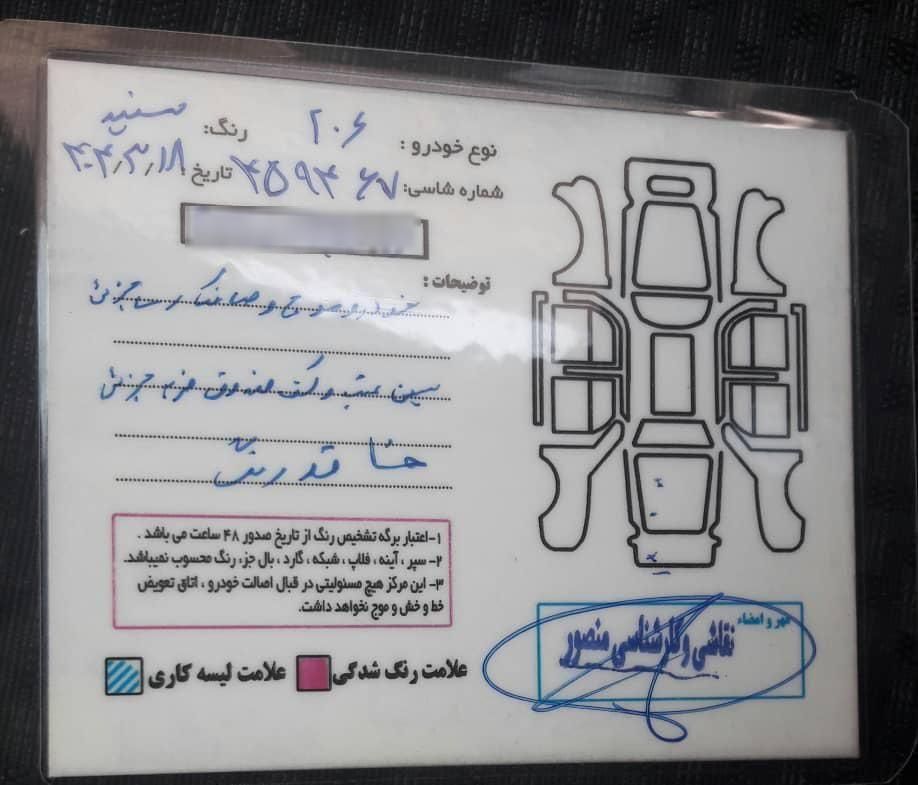 نوع خودرو : ۲۰۶ رنگ: سفید
شماره شاسی: ۴۵۹۴۶۷ تاریخ: ۴۰۴٫۳٫۱۸
توضیحات :
خودرو موج و صافکاری جزئی
سینی عقب و کف صندوق جزئی
فاقد رنگ
۱-اعتبار برگه تشخیص رنگ از تاریخ صدور ۴۸ ساعت می باشد .
۲- سپر ، آینه ، فلاپ ، شبکه ، گارد ، بال جزء رنگ محسوب نمیباشد.
۳- این مرکز هیچ مسئولیتی در قبال اصالت خودرو ، اتاق تعویض
خط و خش و موج نخواهد داشت.
علامت رنگ شدگی علامت لیسه کاری
مهر و امضاء
نقاشی و کارشناسی منصور